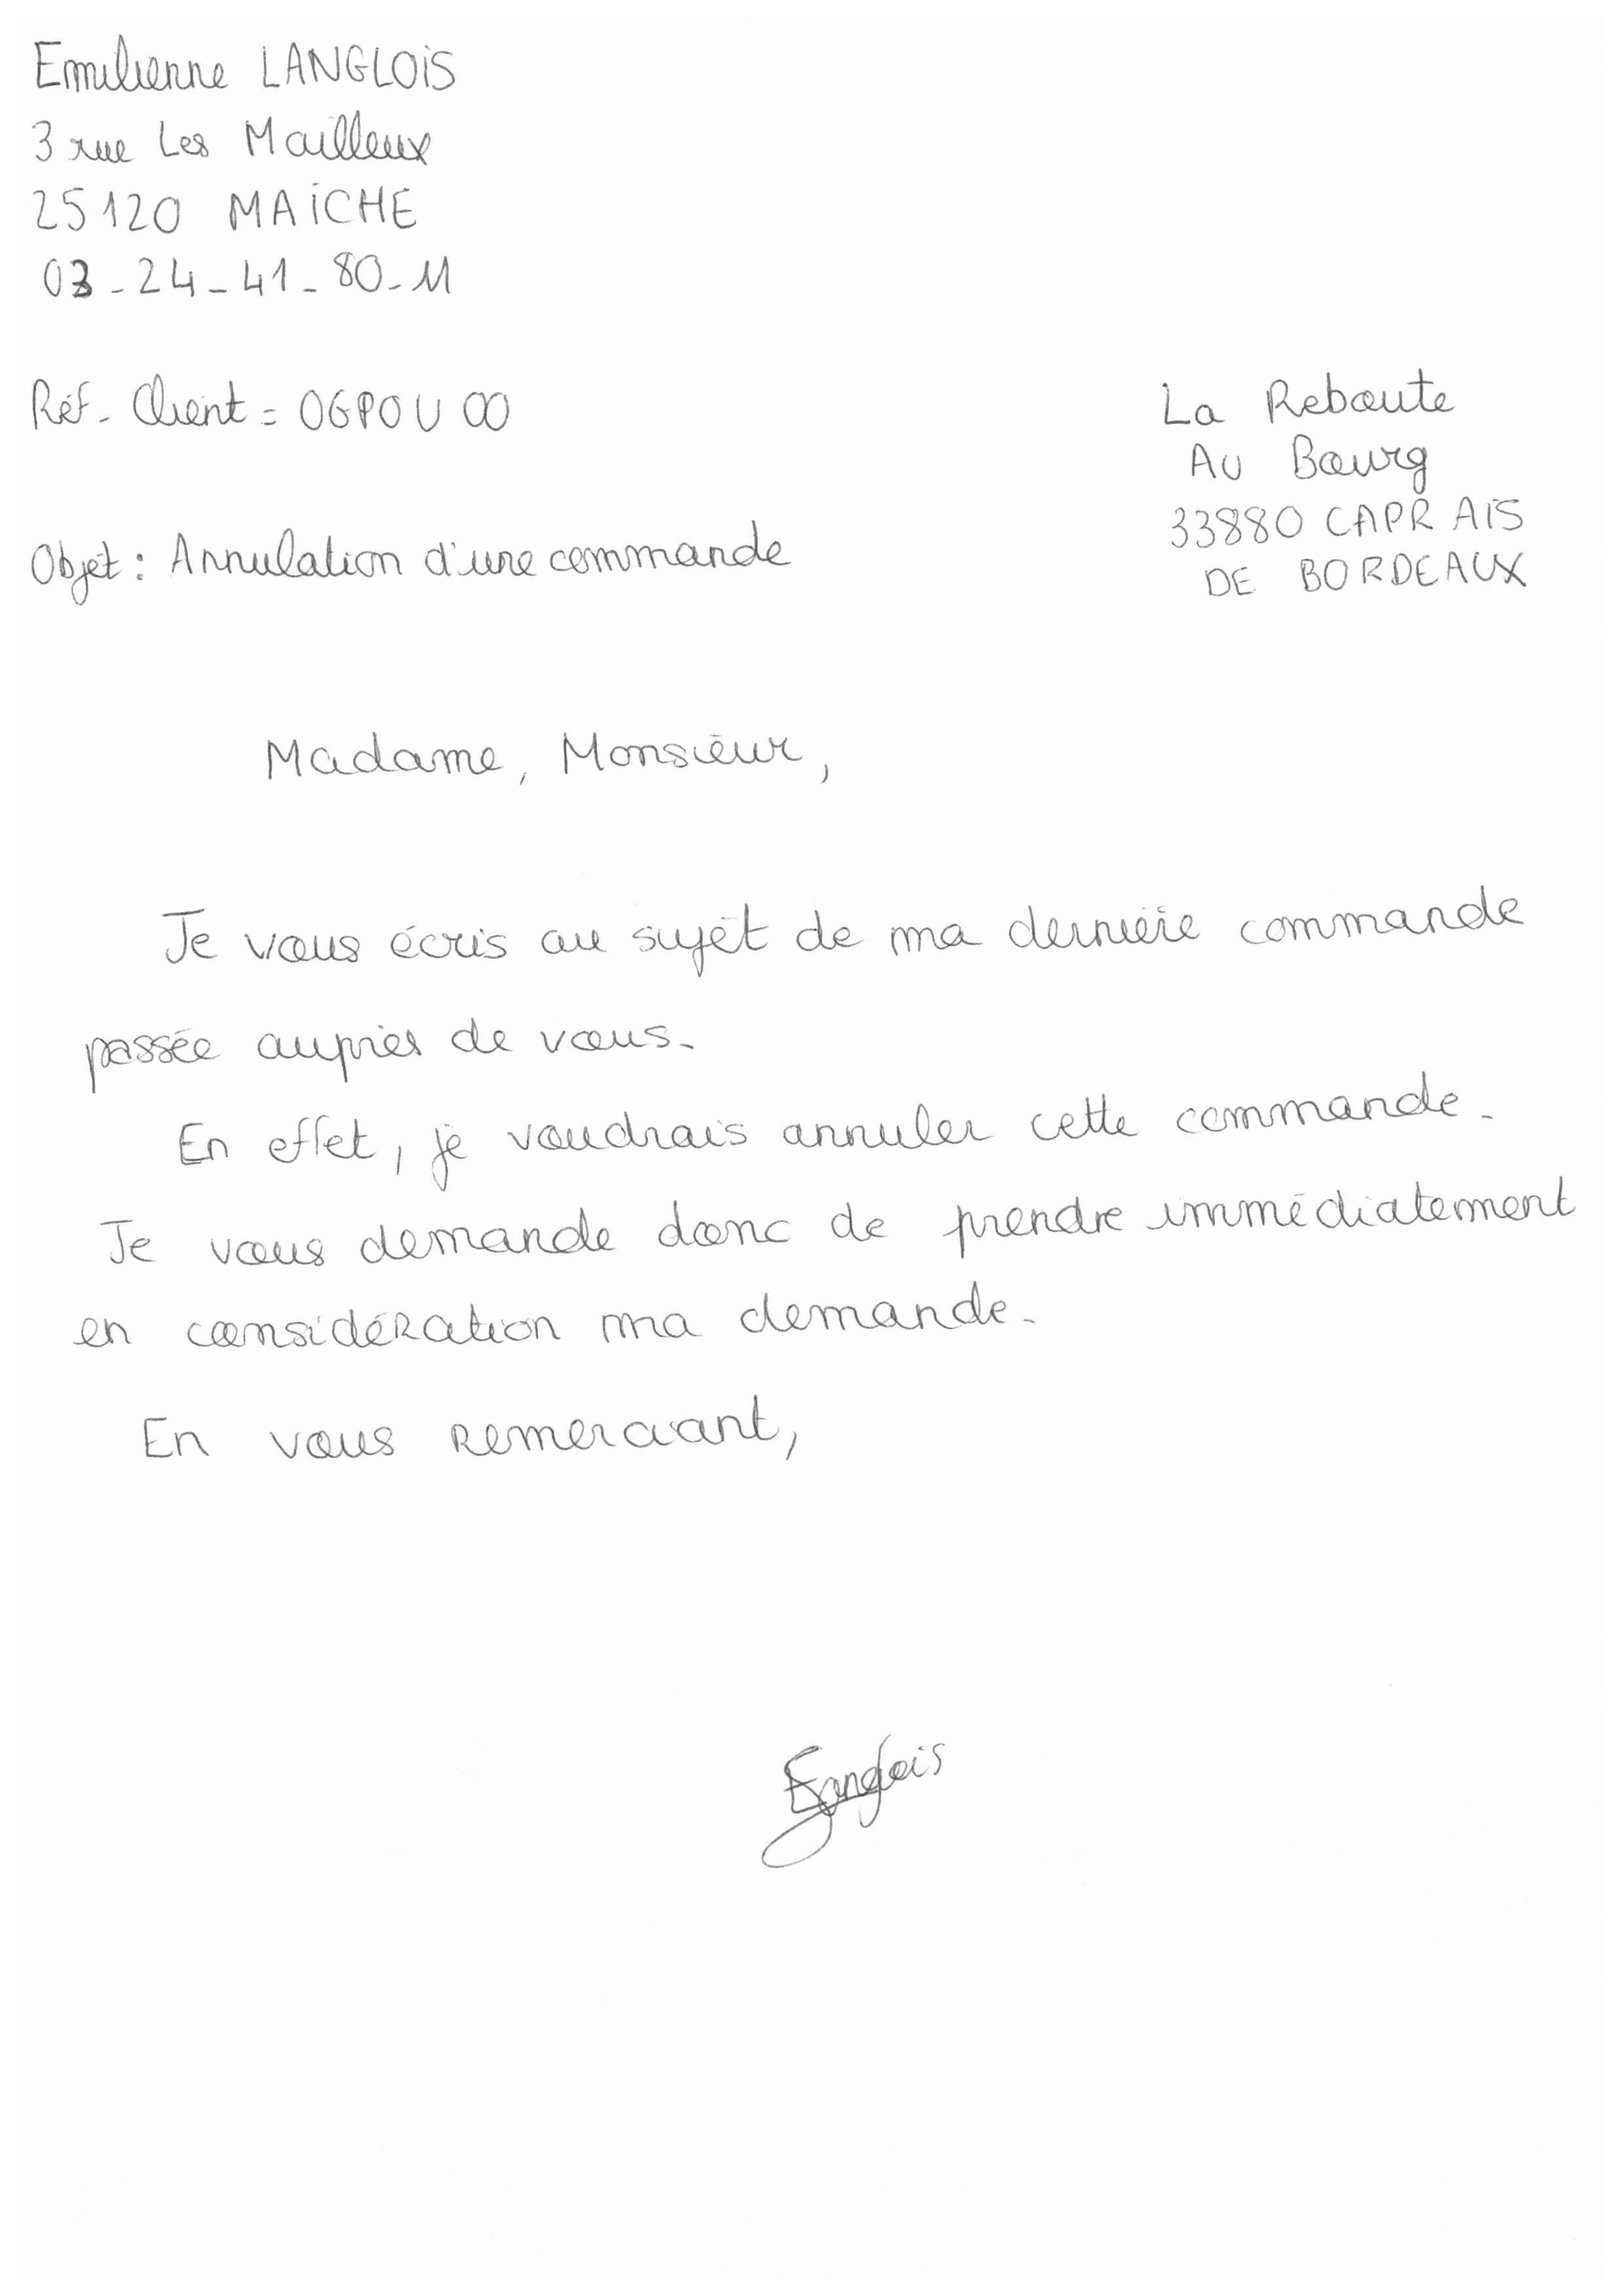 Emilienne LANGLOIS
3 rue Les Mailleux
25120 MAICHE
03-24-41-80-11
Réf. Client = OGPOU00
La Reboute
Au Bourg
33880 CAPRAIS
DE BORDEAUX
Objet : Annulation d'une commande
Madame, Monsieur,
Je vous écris au sujet de ma dernière commande
passée auprès de vous.
En effet, je voudrais annuler cette commande.
Je vous demande donc de prendre immédiatement
en considération ma demande.
En vous remerciant,
ELanglois